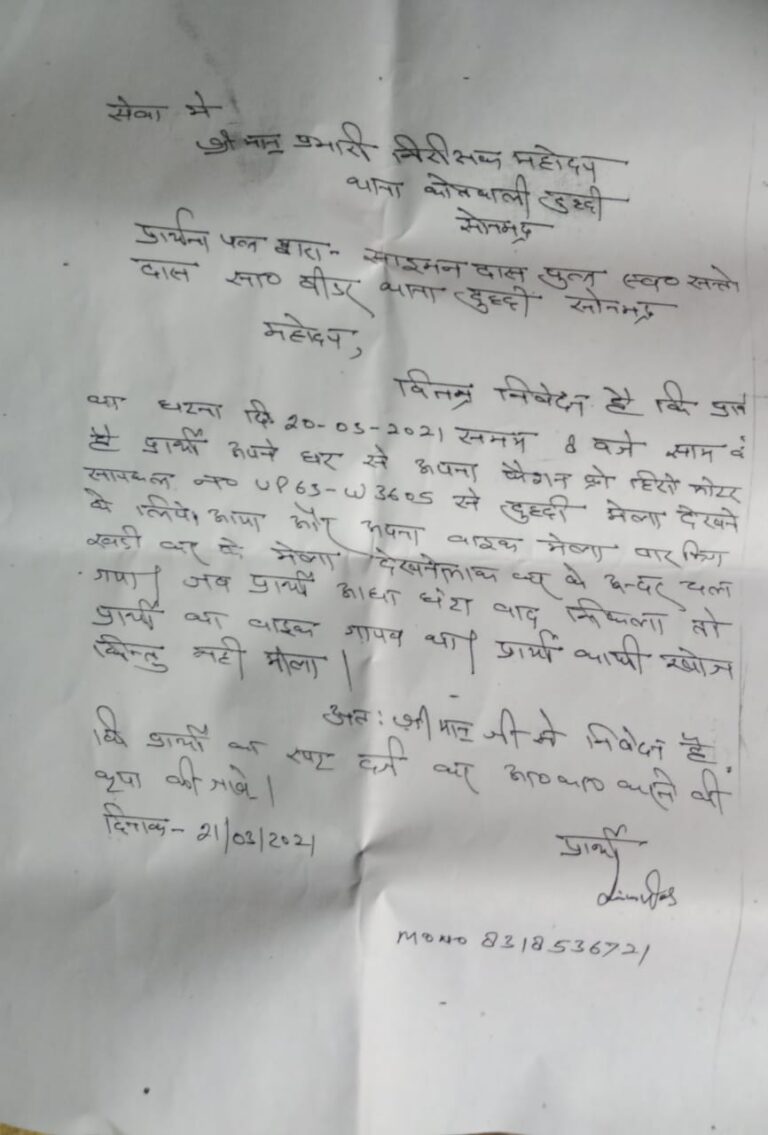 सेवा मे
श्रीमान् प्रभारी निरीक्षक महोदय
थाना कोतवाली दुद्धी
सोनभद्र
प्रार्थना पत्र द्वारा- साइमन दास पुत्र स्व० सन्तो
दास सा० बीडर थाना दुद्धी सोनभद्र
महोदय,
विनम्र निवेदन है कि
का घटना दि० 20-03-2021 समय 8 बजे साम
है प्रार्थी अपने घर से अपना हिरो मोटर
सायकल न० UP63-W3605 से दुद्धी मेला देखने
के लिये आया और अपना बाइक मेला
खडी कर के मेला देखने लाक कर के अन्दर चला
गया। जब प्रार्थी आधा घंटा बाद निकला तो
प्रार्थी का बाइक गायब था। प्रार्थी काफी खोज
किन्तु नही मीला।
अत: श्री मान् जी से निवेदन है
कि प्रार्थी का रपट दर्ज कर आ० का० करने की
कृपा की जावे।
दिनाक- 21/03/2021
प्रार्थी
MONO 8318536721